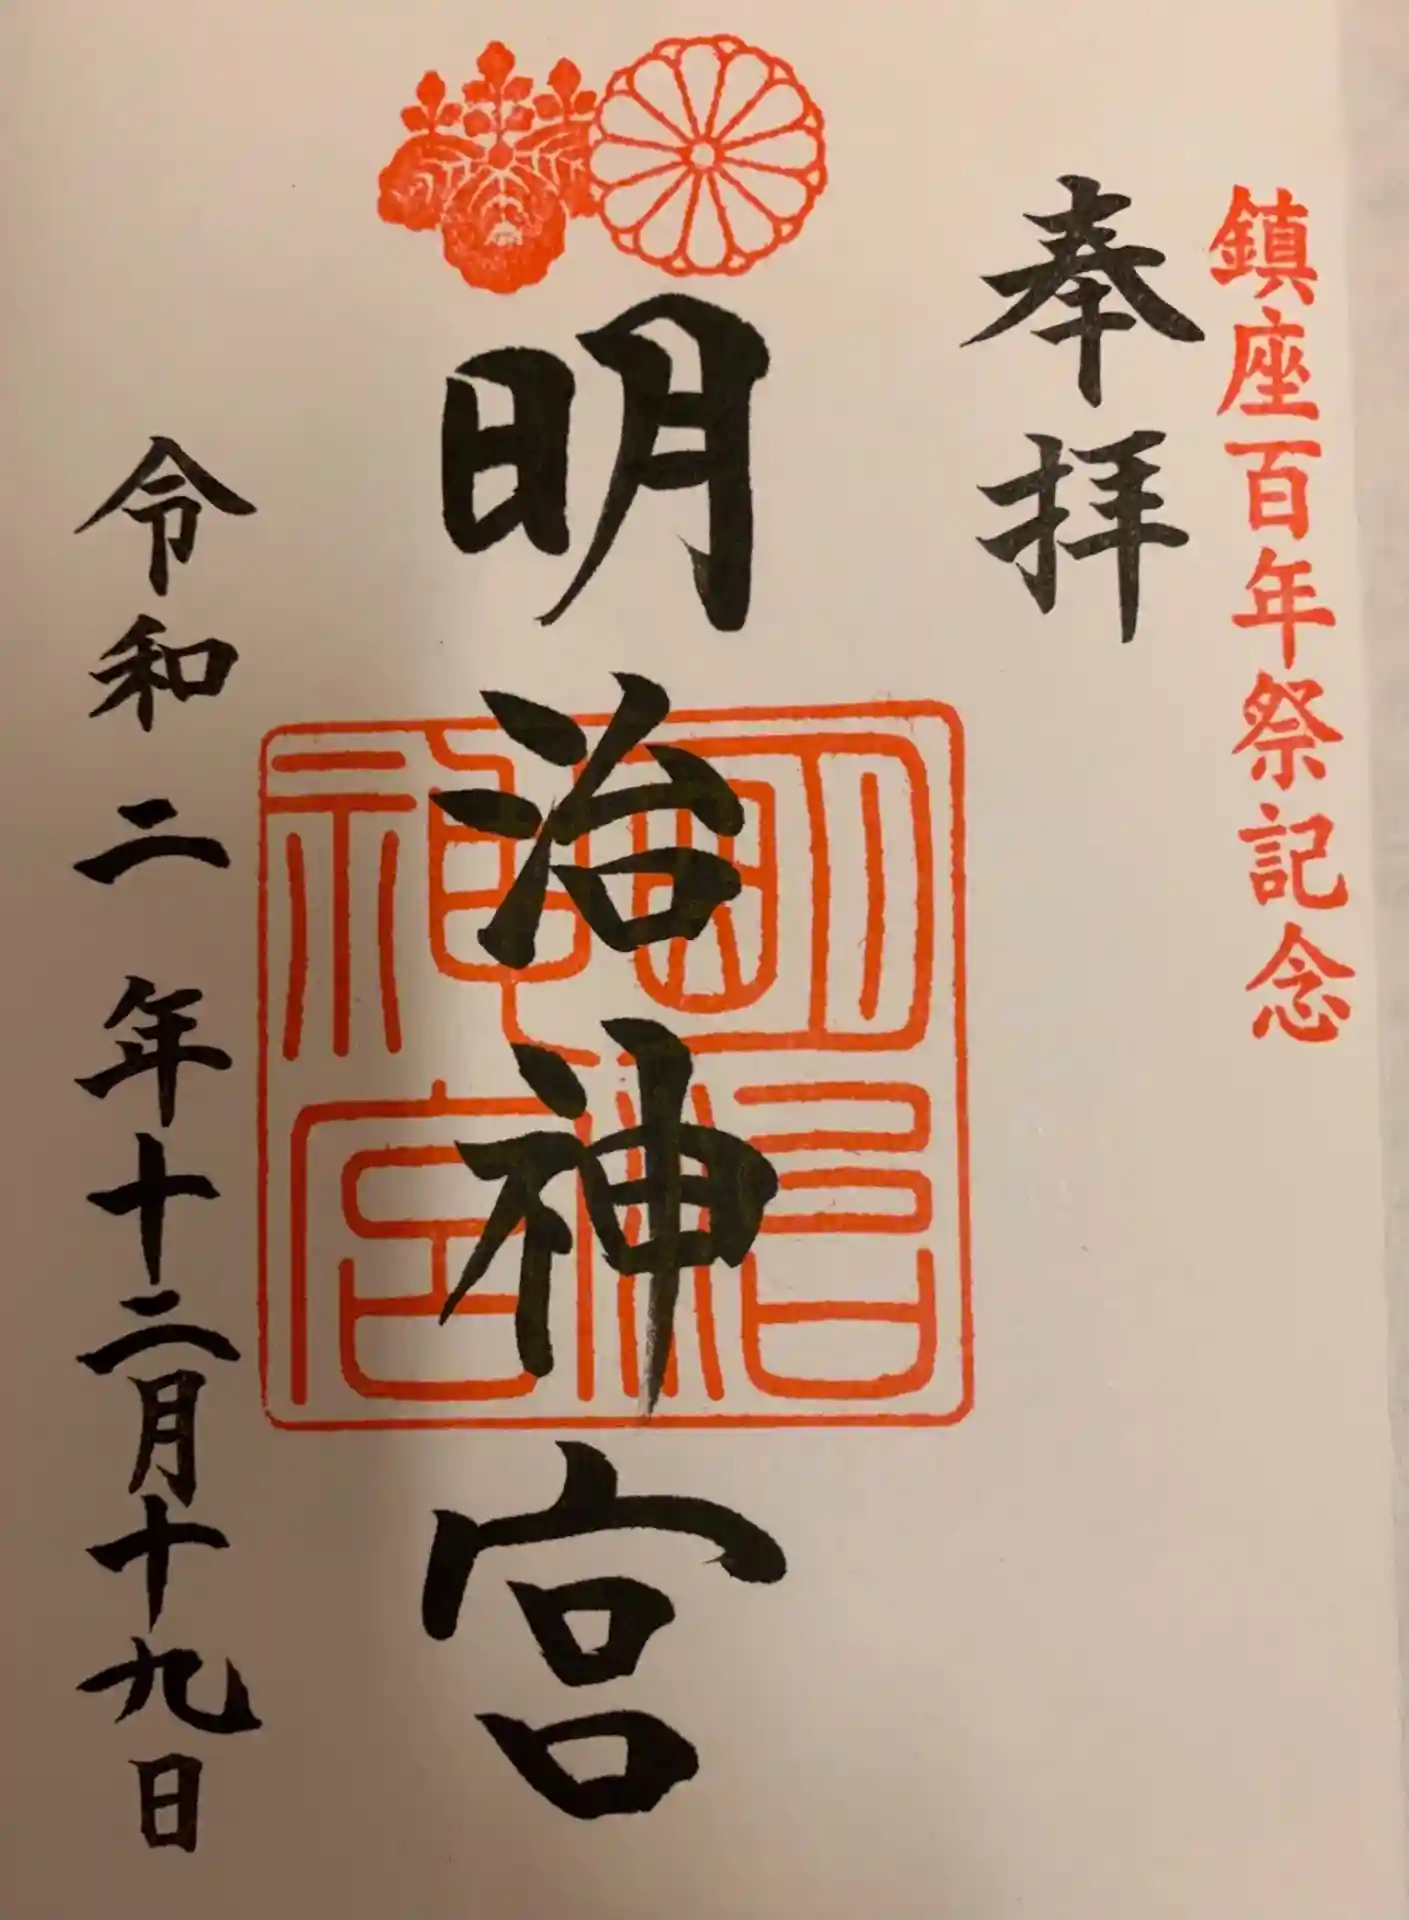 鎮座百年祭記念
奉拝
明治神宮
明治神宮
令和二年十二月十九日